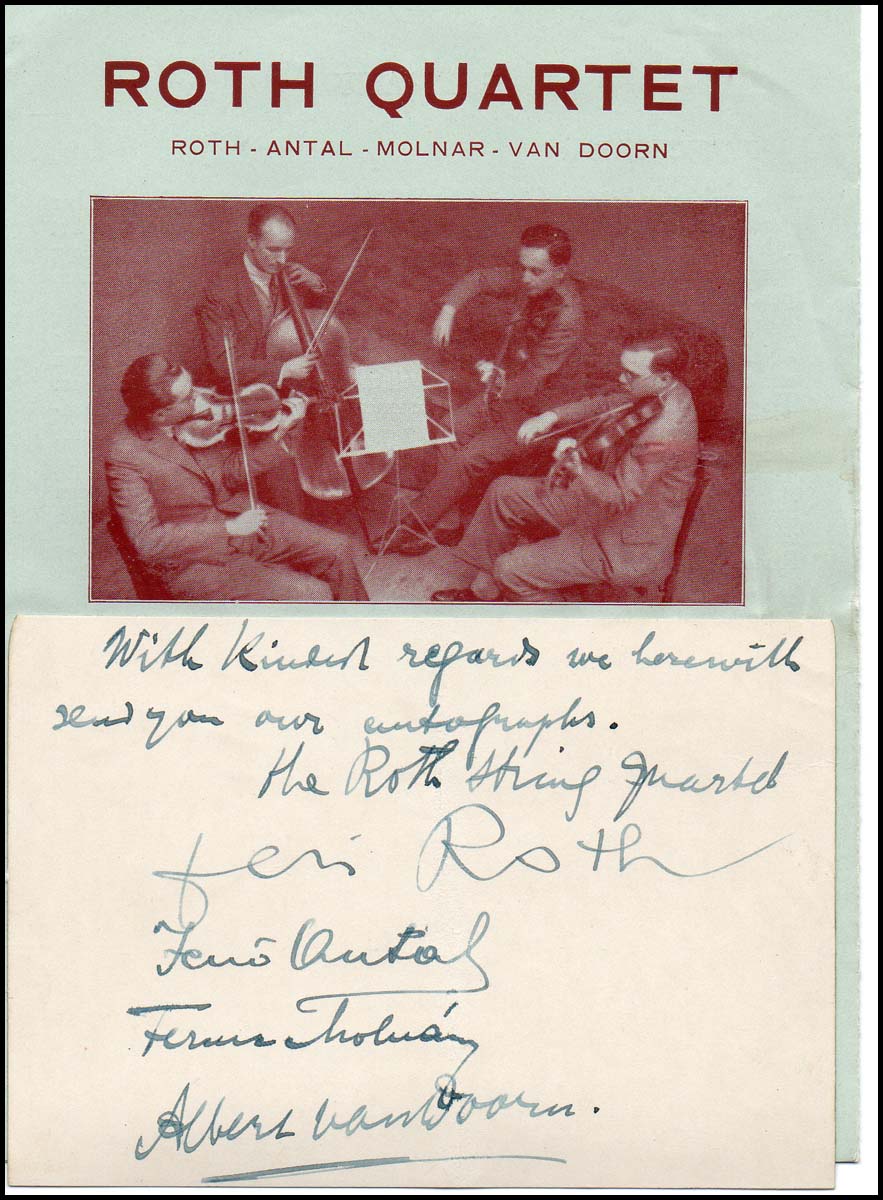 ROTH QUARTET
ROTH - ANTAL - MOLNAR - VAN DOORN
With Kindest regards we herewith
send you our autographs.
the Roth String Quartet
Feri Roth
Jenő Antal
Ferenc Molnár
Albert van Doorn.